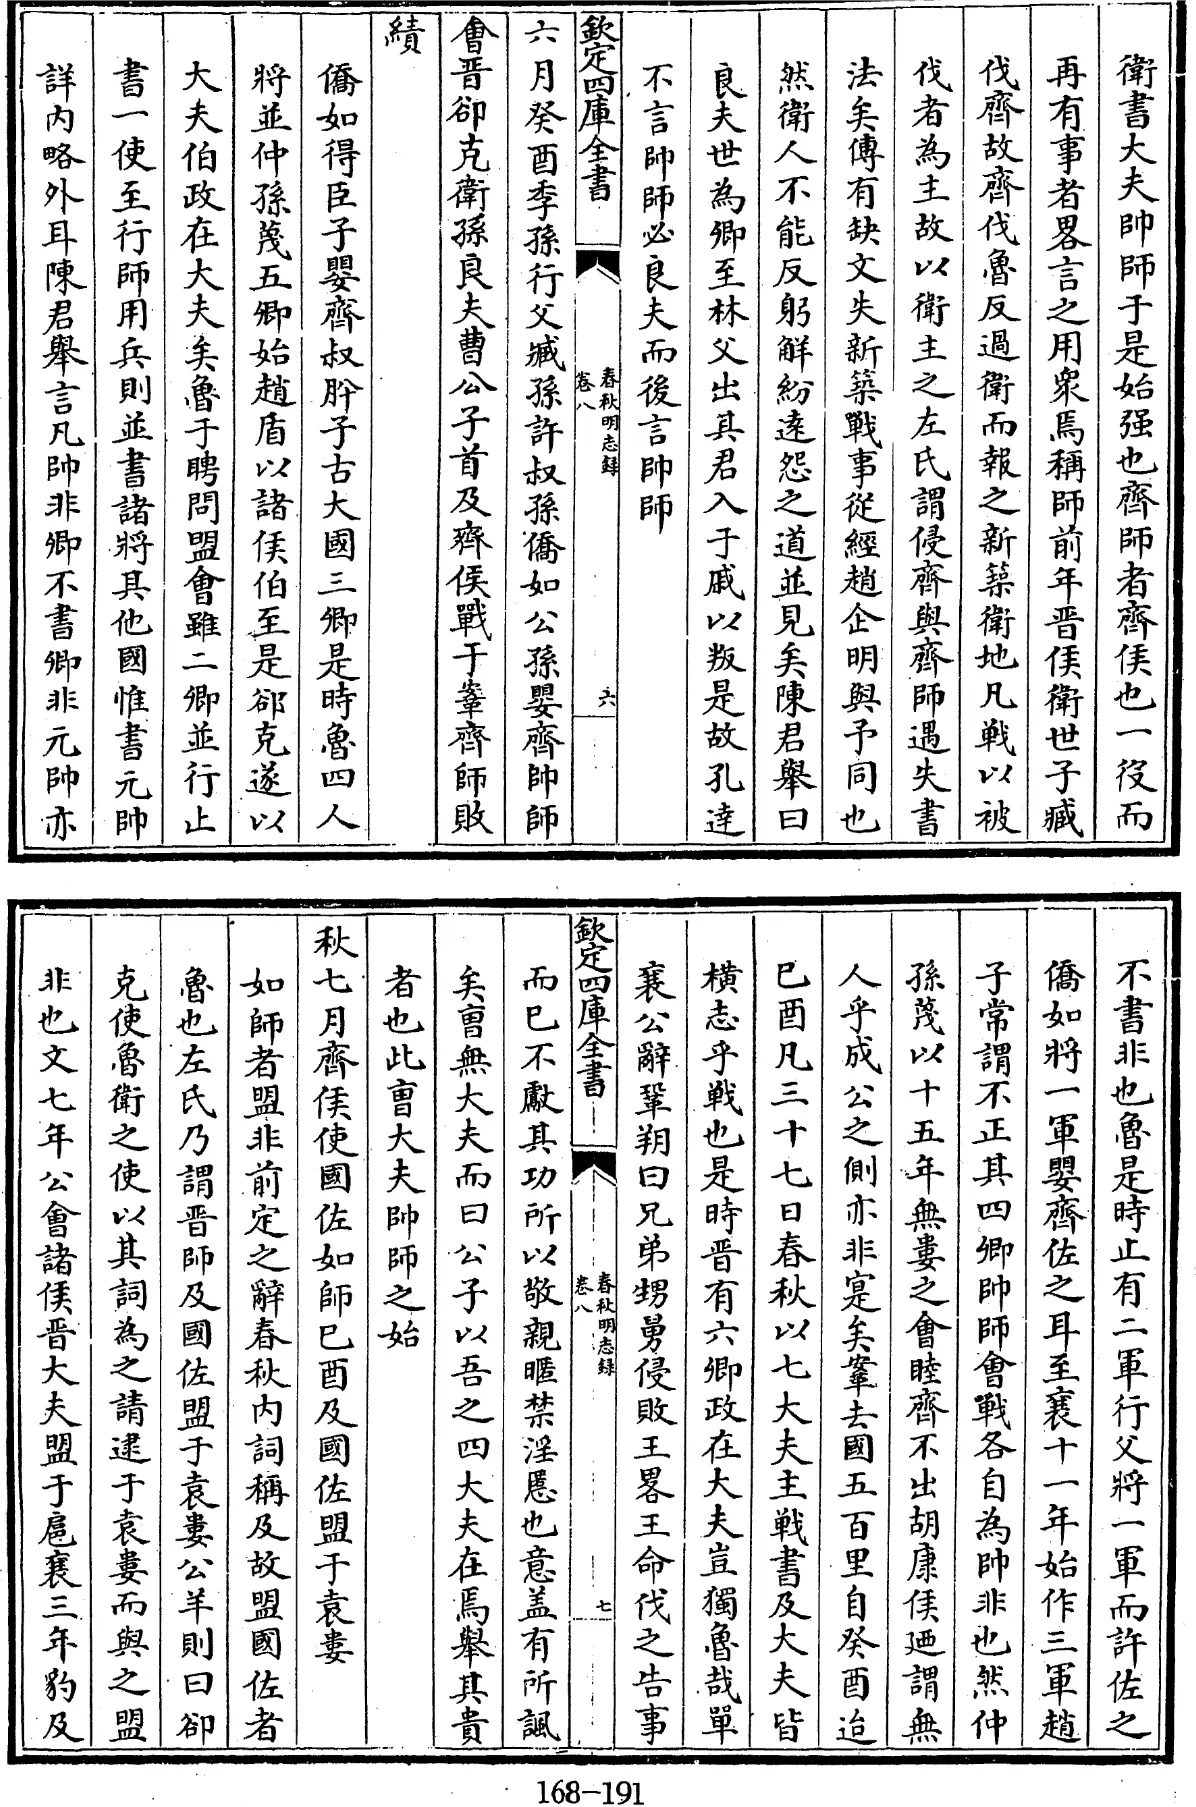 衛書大夫帥師于是始强也齊師者齊侯也一役而
再有事者畧言之用衆焉稱師前年晋侯衛世子臧
伐齊故齊伐魯反過衛而報之新築衛地凡戰以被
伐者為主故以衛主之左氏謂侵齊與齊師遇失書
法矣傳有缺文失新築戰事從經趙企明與予同也
然衛人不能反躬解紛逺怨之道並見矣陳君舉曰
良夫世為卿至林父出其君入于戚以叛是故孔達
不言帥師必良夫而後言帥師
欽定四庫全書
春秋明志録
卷八
六
六月癸酉季孫行父臧孫許叔孫僑如公孫嬰齊帥師
會晋郤克衛孫良夫曹公子首及齊侯戰于鞌齊師敗
績
僑如得臣子嬰齊叔肹子古大國三卿是時魯四人
將並仲孫蔑五卿始趙盾以諸侯伯至是郤克遂以
大夫伯政在大夫矣魯于聘問盟會雖二卿並行止
書一使至行師用兵則並書諸將其他國惟書元帥
詳内略外耳陳君舉言凡帥非卿不書卿非元帥亦
不書非也魯是時止有二軍行父將一軍而許佐之
僑如將一軍嬰齊佐之耳至襄十一年始作三軍趙
子常謂不正其四卿帥師會戰各自為帥非也然仲
孫蔑以十五年無婁之會睦齊不出胡康侯廼謂無
人乎成公之側亦非寔矣鞌去國五百里自癸酉迨
已酉凡三十七日春秋以七大夫主戰書及大夫皆
横志乎戰也是時晋有六卿政在大夫豈獨魯哉單
襄公辭鞏朔曰兄弟甥舅侵敗王畧王命伐之告事
欽定四庫全書
春秋明志録
卷八
七
而已不獻其功所以敬親暱禁淫慝也意盖有所諷
矣曹無大夫而曰公子以吾之四大夫在焉舉其貴
者也此曹大夫帥師之始
秋七月齊侯使國佐如師已酉及國佐盟于袁婁
如師者盟非前定之辭春秋内詞稱及故盟國佐者
魯也左氏乃謂晋師及國佐盟于袁婁公羊則曰郤
克使魯衛之使以其詞為之請逮于袁婁而與之盟
非也文七年公會諸侯晋大夫盟于扈襄三年豹及
168-191